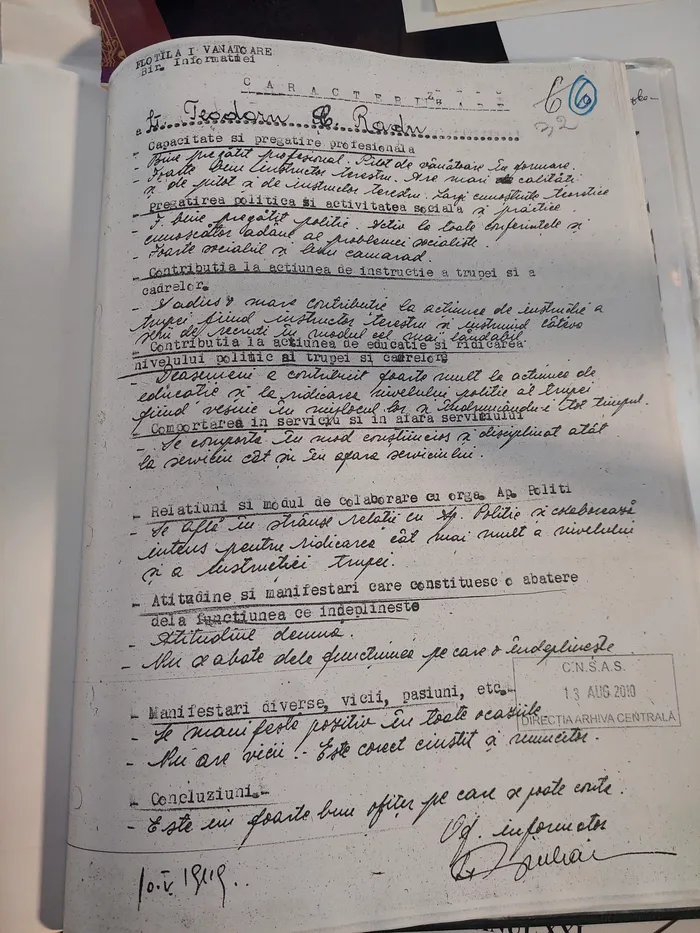 FLOTILA I VANATOARE
Bir. Informatiei
CARACTERIZARE
6 6
32
a Lt. Teodoru Radu
- Capacitate si pregatire profesionala
- Bine pregătit profesional. Pilot de vânătoare în formare.
- Foarte bun instructor terestru. Are mari calități
și de pilot și de instructor terestru. Largi cunoștințe teoretice
și practice.
- Pregatirea politica si activitatea sociala
- F. bine pregătit politic. Activ la toate conferințele și
cunoscător adânc al problemei socialiste.
- Foarte sociabil și bun camarad.
- Contributia la actiunea de instructie a trupei si a
cadrelor.
- A adus o mare contribuție la acțiunea de instrucție a
trupei fiind instructor terestru și instruind câteva
serii de recruți în modul cel mai laudabil.
- Contributia la actiunea de educatie si ridicarea
nivelului politic al trupei si cadrelor
- Deasemeni a contribuit foarte mult la acțiunea de
educație și la ridicarea nivelului politic al trupei
fiind veșnic în mijlocul lor și îndrumându-i tot timpul.
- Comportarea in serviciu si in afara serviciului
- Se comportă în mod conștiincios și disciplinat atât
la serviciu cât și în afara serviciului.
- Relatiuni si modul de colaborare cu orga. Ap. Politi
- Se află în strânse relații cu Ap. Politic și colaborează
intens pentru ridicarea cât mai mult a nivelului
și a instrucției trupei.
- Atitudine si manifestari care constituesc o abatere
dela functiunea ce indeplineste
- Atitudine demnă.
- Nu se abate dela funcțiunea pe care o îndeplinește
C.N.S.A.S.
13 AUG 2010
DIRECTIA ARHIVA CENTRALĂ
- Manifestari diverse, vicii, pasiuni, etc.-
- Se manifestă pozitiv în toate ocaziile
- Nu are vicii. - Este corect cinstit și muncitor.
- Concluziuni.-
- Este un foarte bun ofițer pe care se poate conta.
Of. informator
10.V.1949.